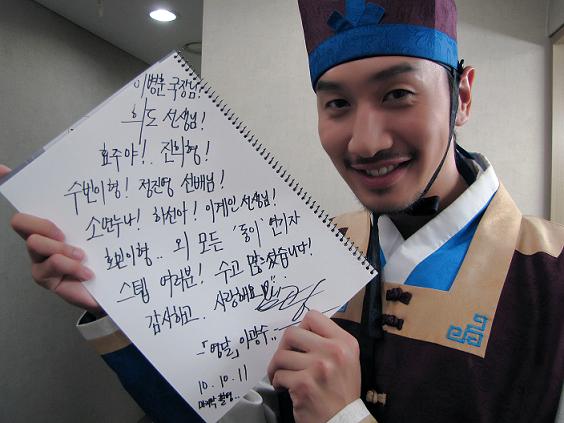 이병훈 국장님!
희도 선생님!
효주야!.. 진희형!
수빈이형! 정진영 선배님!
소연누나! 하선아! 이계인 선생님!
효민이형.. 외 모든 '동이' 연기자
스텝 여러분! 수고 많으셨습니다!
감사하고.. 사랑해요
-「영달」이광수..
10.10.11
마지막 촬영..